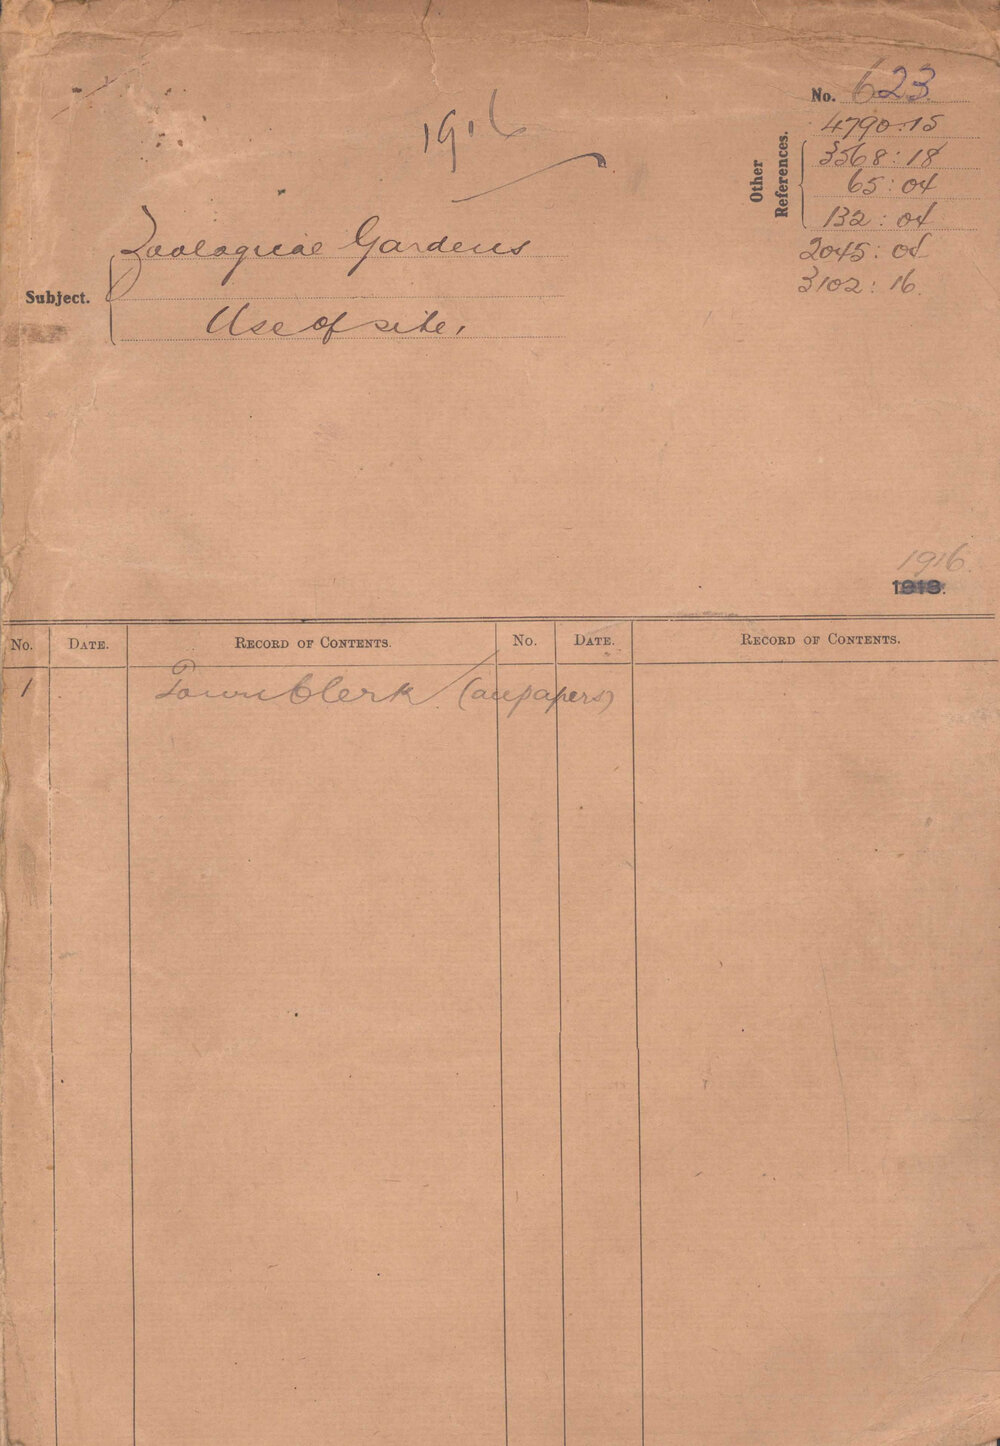 No. 623
1916
4790:15
Other References.
3568:18
65:04
132:04
2045:04
3102:16.
Subject.
Zoological Gardens
Use of site.
1916.
1918.
No. DATE. RECORD OF CONTENTS. No. DATE. RECORD OF CONTENTS.
1 Town Clerk (all papers)